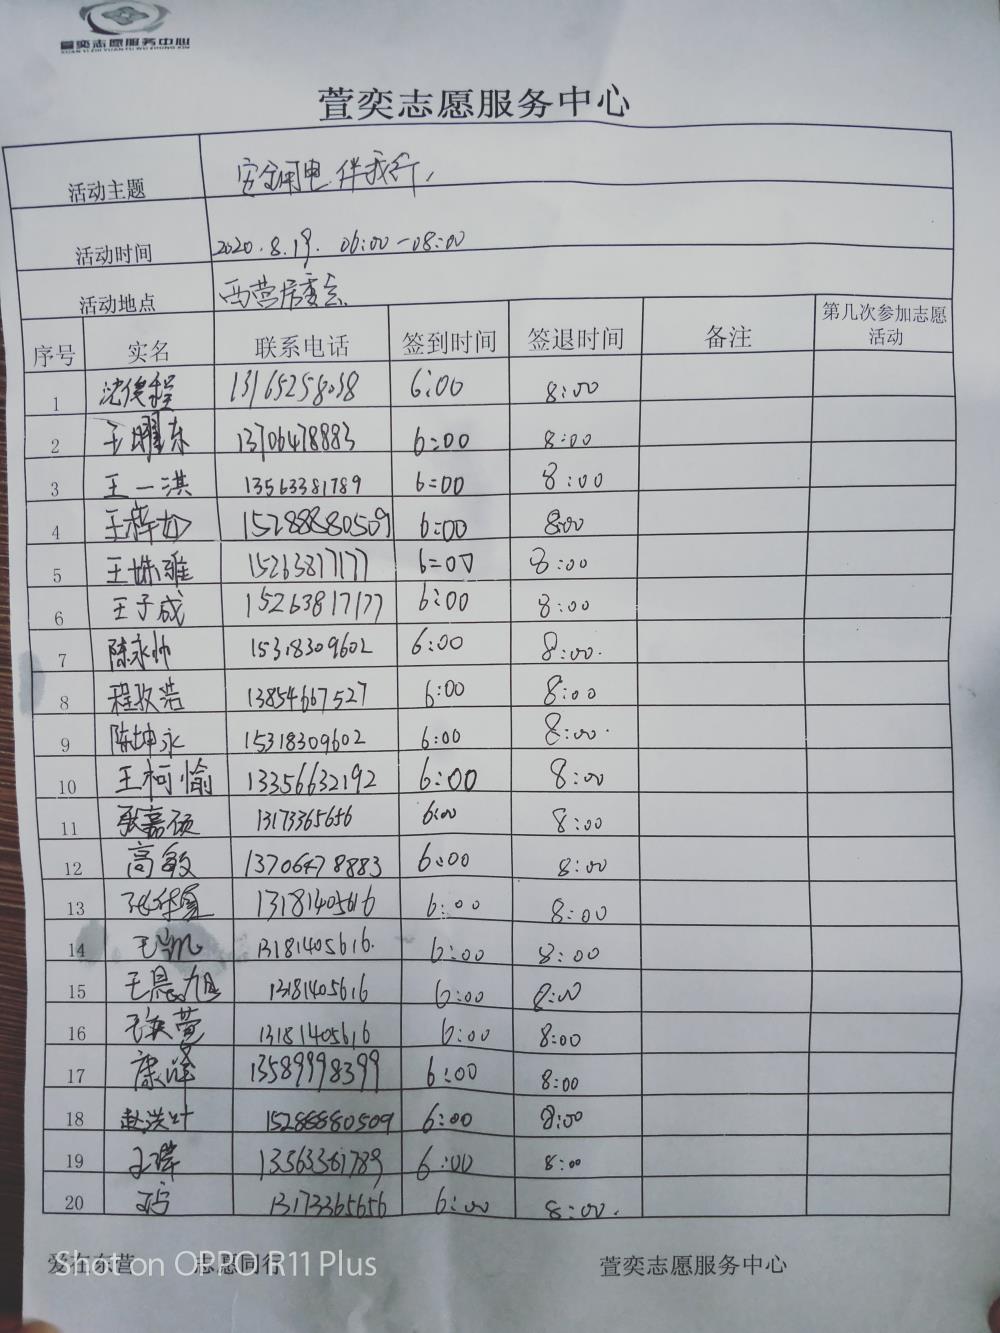 萱奕志愿服务中心
XUAN YI ZHI YUAN FU WU ZHONG XIN
萱奕志愿服务中心
活动主题 安全用电 伴我行,
活动时间 2020.8.19. 06:00-08:00
活动地点 西营居委会
序号 实名 联系电话 签到时间 签退时间 备注 第几次参加志愿
活动
1 沈俊程 13165258038 6:00 8:00
2 王曜东 13706478883 6:00 8:00
3 王一淇 13563381789 6:00 8:00
4 王梓如 15288880509 6:00 8:00
5 王姝雅 15263817177 6:00 8:00
6 王子成 15263817177 6:00 8:00
7 陈永帅 15318309602 6:00 8:00.
8 程孜浩 13854667527 6:00 8:00
9 陈坤永 15318309602 6:00 8:00.
10 王柯愉 13356632192 6:00 8:00
11 张嘉硕 13173365656 6:00 8:00
12 高敏 13706478883 6:00 8:00
13 13181405616 6:00 8:00
14 王凯 13181405616. 6:00 8:00
15 王晨旭 13181405616 6:00 8:00
16 萱 13181405616 6:00 8:00
17 康泽 13589998399 6:00 8:00
18 赵洪叶 15288880509 6:00 8:00
19 13563381789 6:00 8:00
20 13173365656 6:00 8:00.
爱在东营 志愿同行 萱奕志愿服务中心
Shot on OPPO R11 Plus